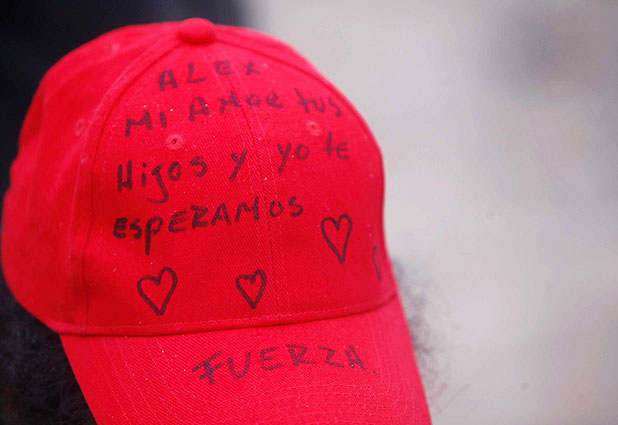 ALEX
MI AMOR tus
Hijos y yo te
ESPERAMOS
FUERZA.